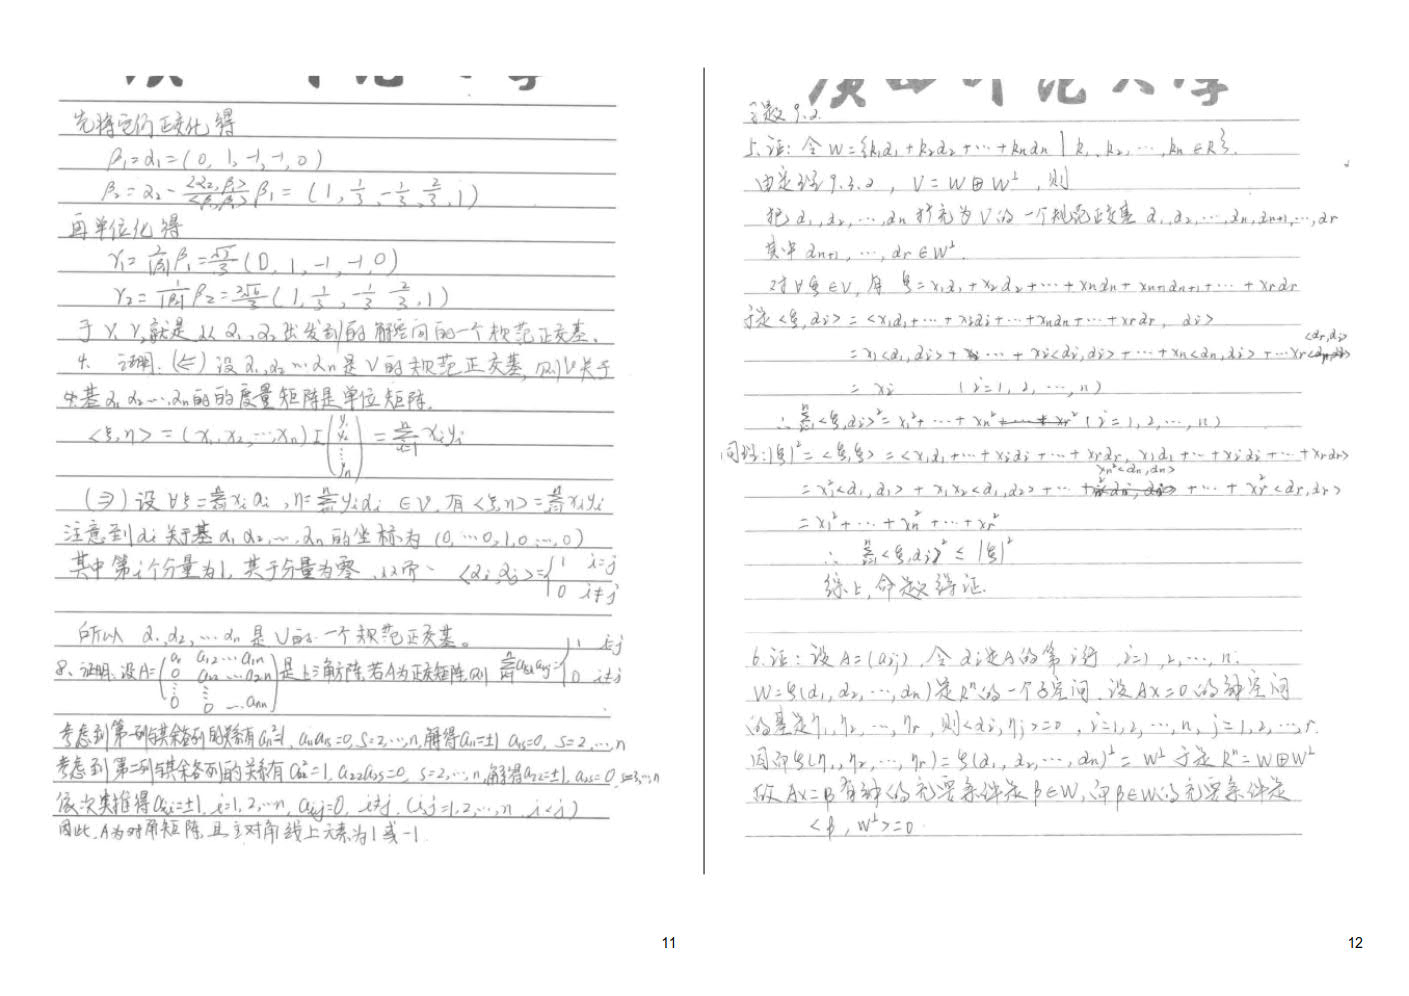 先将它们正交化得
β₁=α₁=(0, 1, -1, -1, 0)
β₂=α₂- <α₂,β₁>/<β₁,β₁> β₁ = (1, 1/3, -1/3, 2/3, 1)
再单位化得
于γ₁γ₂就是从α₁,α₂出发到的解空间的一个规范正交基.
4. 证明.(⇐)设α₁,α₂…αn是V的规范正交基,则V关于
基α₁ α₂…αn的的度量矩阵是单位矩阵.
<ξ,η> = (x₁,x₂,…,xn) I (y₁ y₂ ⋮ yn) = Σxᵢyᵢ
(⇒)设∀ξ=Σxᵢαᵢ,η=Σyᵢαᵢ∈V,有<ξ,η>=Σxᵢyᵢ
注意到αᵢ关于基α₁ α₂,…,αn的坐标为(0,…0,1,0…,0)
其中第i个分量为1,其于分量为零 从而 <αᵢ,αⱼ>={1 i=j
0 i≠j
所以 α₁,α₂,…αn是V的一个规范正交基。
8.证明.设A=(a₁ a₁₂…a₁n 0 a₂₂…a₂n ⋮ ⋮ 0 0 …ann)是上三角方阵,若A为正交矩阵,则 Σaₖᵢaₖⱼ={1 i=j
0 i≠j
考虑到第一列与其余各列的关系有a₁₁²=1, a₁₁a₁s=0, s=2,…,n,解得a₁₁=±1 a₁s=0, s=2,…,n
考虑到第二列与其余各列的关系有a₂₂²=1, a₂₂a₂s=0, s=2,…,n,解得a₂₂=±1, a₂s=0, s=3,…,n
依次类推得aᵢᵢ=±1, i=1,2,…n, aᵢⱼ=0, i≠j, (i,j=1,2,…,n i<j)
因此,A为对角矩阵,且主对角线上元素为1或-1.
11
习题9.2.
5.证: 令W={k₁α₁+k₂α₂+…+knαn | k₁,k₂,…,kn∈R}.
由定理9.3.2, V=W⊕W⊥,则
把α₁,α₂,…,αn扩充为V的一个规范正交基α₁,α₂,…,αn,αn+1,…,αr
其中αn+1,…,αr∈W⊥
对∀ξ∈V,有 ξ=x₁α₁+x₂α₂+…+xnαn+xn+1αn+1+…+xrαr
于是<ξ,αᵢ>=<x₁α₁+…+xᵢαᵢ+…+xnαn+…+xrαr, αᵢ>
=x₁<α₁,αᵢ>+…+xᵢ<αᵢ,αᵢ>+…+xn<αn,αᵢ>+…xr<αr,αᵢ>
= xᵢ (i=1,2,…,n)
∴ Σ<ξ,αᵢ>²=x₁²+…+xn² (i=1,2,…,n)
同理:|ξ|²=<ξ,ξ>=<x₁α₁+…+xᵢαᵢ+…+xrαr, x₁α₁+…+xᵢαᵢ+…+xrαr>
=x₁²<α₁,α₁>+x₁x₂<α₁,α₂>+…+xn²<αn,αn>+…+xr²<αr,αr>
=x₁²+…+xn²+…+xr²
∴ Σ<ξ,αᵢ>² ≤ |ξ|²
综上,命题得证.
6.证: 设A=(aᵢⱼ),令αᵢ是A的第i行, i=1,2,…,n.
W=ξ(α₁,α₂,…,αn)是Rⁿ的一个子空间.设AX=0的解空间
的基是η₁,η₂,…,ηr,则<αᵢ,ηⱼ>=0, i=1,2,…,n, j=1,2,…,r.
因而ξ(η₁,η₂,…,ηr)=ξ(α₁,α₂,…,αn)⊥=W⊥ 于是Rⁿ=W⊕W⊥
故AX=β有解的充要条件是β∈W,而β∈W的充要条件是
<β,W⊥>=0.
12